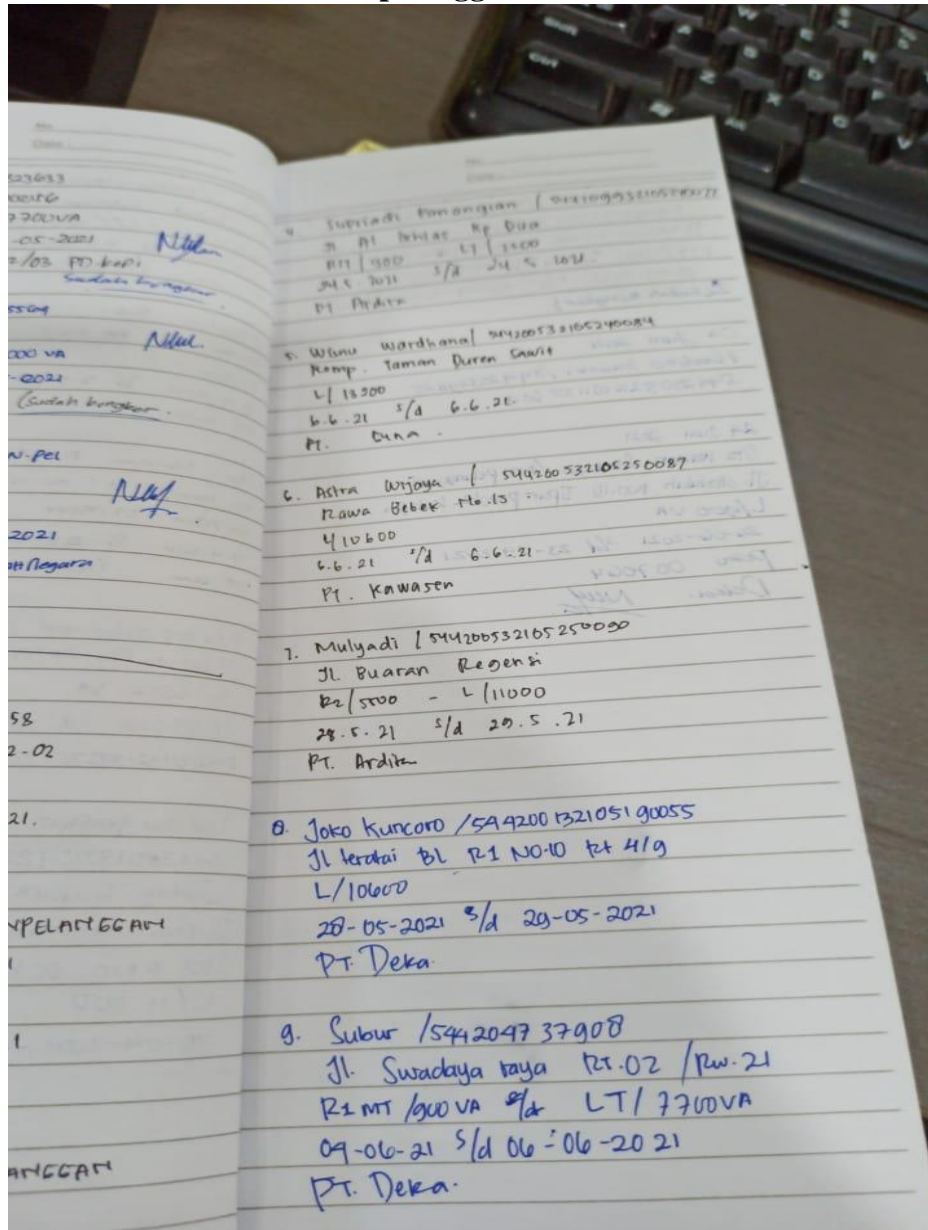 No.
Date
23633
7700VA
-05-2021
2/03 PD. kopi
Sudah bongkar
000 VA
-2021
(Sudah bongkar
N-Pel
2021
Negara
58
2-02
21.
NPELANGGAN
1
ANGGAN
4. Supriadi /
Jl Al Ikhlas Kp Dua
R1T/900 - LT/3500
24 5 2021 s/d 24 5 2021
PT Ardita
5. Wisnu Wardhana/ 544200532105240084
Komp. Taman Duren Sawit
L/ 13200
6.6.21 s/d 6.6.21.
PT.
6. Astra Wijaya / 544260532105250087
Rawa Bebek No.15
L/10600
6.6.21 s/d 6.6.21
PT. Kawasen
7. Mulyadi / 544200532105250090
Jl. Buaran Regensi
R2/5500 - L/11000
28.5.21 s/d 29.5.21
PT. Ardita
8. Joko Kuncoro /544200132105190055
Jl teratai BL R1 NO.10 Rt 4/9
L/10600
28-05-2021 s/d 29-05-2021
PT. Deka.
9. Subur /544204737908
Jl. Swadaya raya Rt.02 /Rw.21
R1 MT /900 VA s/d LT/ 7700VA
09-06-21 s/d 06-06-2021
PT. Deka.